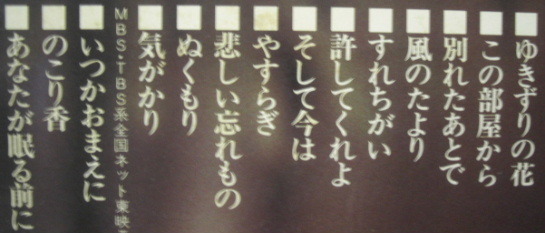 ゆきずりの花
この部屋から
別れたあとで
風のたより
すれちがい
許してくれよ
そして今は
やすらぎ
悲しい忘れもの
ぬくもり
気がかり
MBS・TBS系全国ネット東映
いつかおまえに
のこり香
あなたが眠る前に